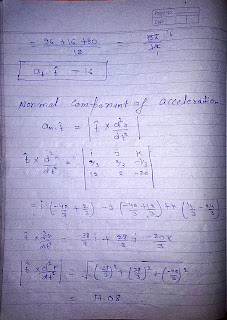 Page No.
Date
= 96 + 16 + 80 / 12 = 192 / 12 16
at. t̂ = 16
Normal Component of acceleration
an. t̂ = | t̂ × d²r / dt² |
t̂ × d²r / dt² = | i j k
2/3
12 2 -20 |
= i (-40/3 + 2/3) - j (-40/3 + 12/3) + k (4/3 - 24/3)
t̂ × d²r / dt² = 38/3 i + 28/3 j - 20/3 k
| t̂ × d²r / dt² | = √ (38/3)² + (28/3)² + (-20/3)²
= 17.08